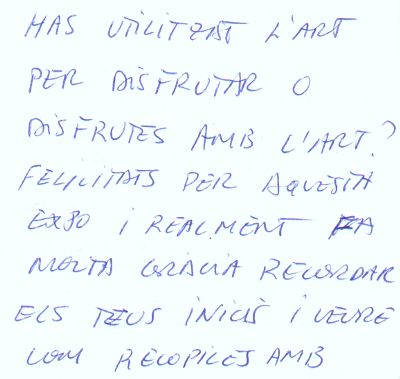 HAS UTILITZAT L'ART
PER DISFRUTAR O
DISFRUTES AMB L'ART?
FELICITATS PER AQUESTA
EXPO I REALMENT FA
MOLTA GRÀCIA RECORDAR
ELS TEUS INICIS I VEURE
COM RECOPILES AMB